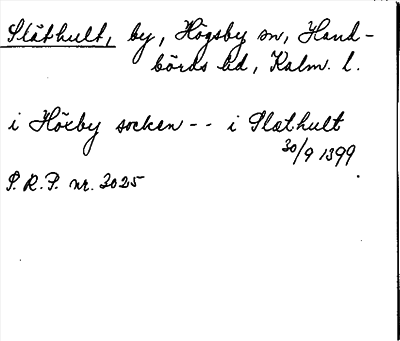 Slåthult, by, Högsby sn, Hand-
börds hd, Kalm. l.
i Höxby socken -- i Slæthult
30/9 1399
S.R.P. nr. 3025